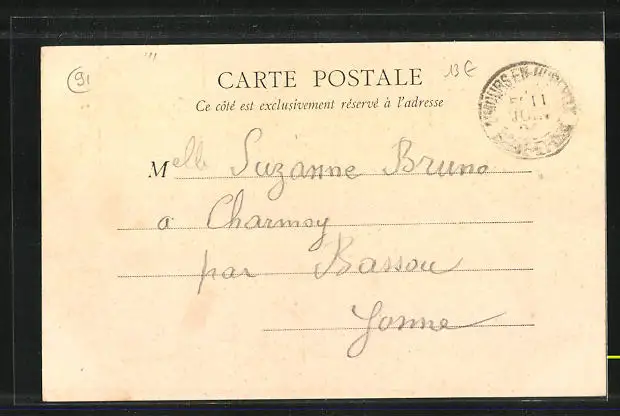 91
13€
CARTE POSTALE
Ce côté est exclusivement réservé à l'adresse
Melle Suzanne Bruno
a Charmoy
par Bassou
Yonne
11
JUIN